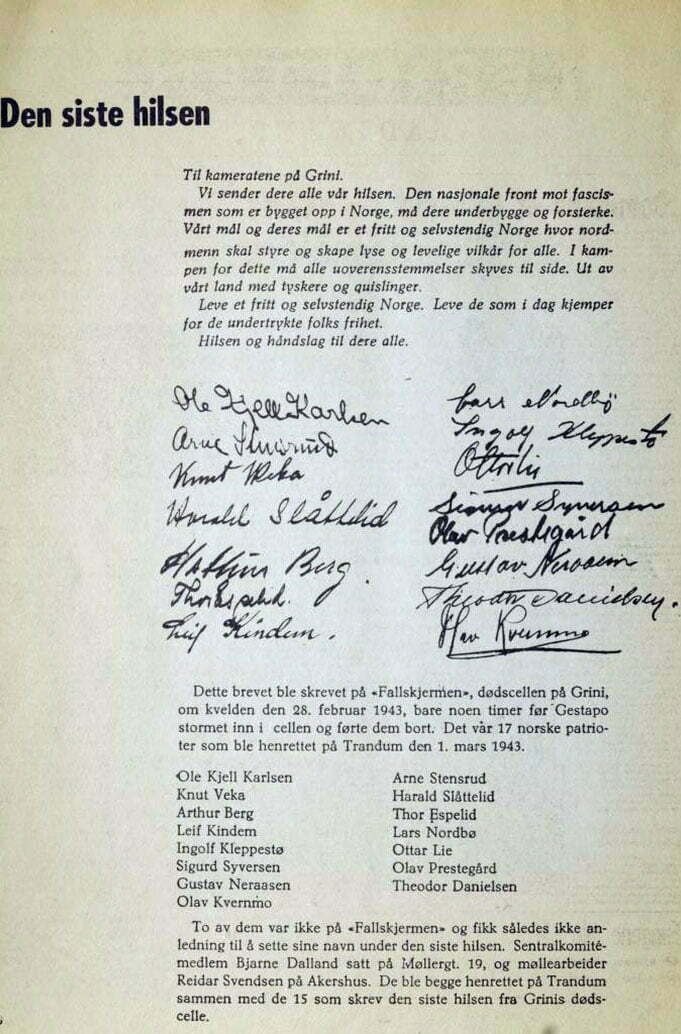 Den siste hilsen
Til kameratene på Grini.
Vi sender dere alle vår hilsen. Den nasjonale front mot fascis-
men som er bygget opp i Norge, må dere underbygge og forsterke.
Vårt mål og deres mål er et fritt og selvstendig Norge hvor nord-
menn skal styre og skape lyse og levelige vilkår for alle. I kam-
pen for dette må alle uoverensstemmelser skyves til side. Ut av
vårt land med tyskere og quislinger.
Leve et fritt og selvstendig Norge. Leve de som i dag kjemper
for de undertrykte folks frihet.
Hilsen og håndslag til dere alle.
Ole Kjell Karlsen
Arne Stensrud
Knut Veka
Harald Slåttelid
Arthur Berg.
Thor Espelid.
Leif Kindem.
Lars Nordbø
Ingolf Kleppestø
Ottar Lie
Sigurd Syversen
Olav Prestegård
Gustav Neraasen
Theodor Danielsen.
Olav Kvernmo
Dette brevet ble skrevet på «Fallskjermen», dødscellen på Grini,
om kvelden den 28. februar 1943, bare noen timer før Gestapo
stormet inn i cellen og førte dem bort. Det var 17 norske patrio-
ter som ble henrettet på Trandum den 1. mars 1943.
Ole Kjell Karlsen
Knut Veka
Arthur Berg
Leif Kindem
Ingolf Kleppestø
Sigurd Syversen
Gustav Neraasen
Olav Kvernmo
Arne Stensrud
Harald Slåttelid
Thor Espelid
Lars Nordbø
Ottar Lie
Olav Prestegård
Theodor Danielsen
To av dem var ikke på «Fallskjermen» og fikk således ikke an-
ledning til å sette sine navn under den siste hilsen. Sentralkomité-
medlem Bjarne Dalland satt på Møllergt. 19, og møllearbeider
Reidar Svendsen på Akershus. De ble begge henrettet på Trandum
sammen med de 15 som skrev den siste hilsen fra Grinis døds-
celle.